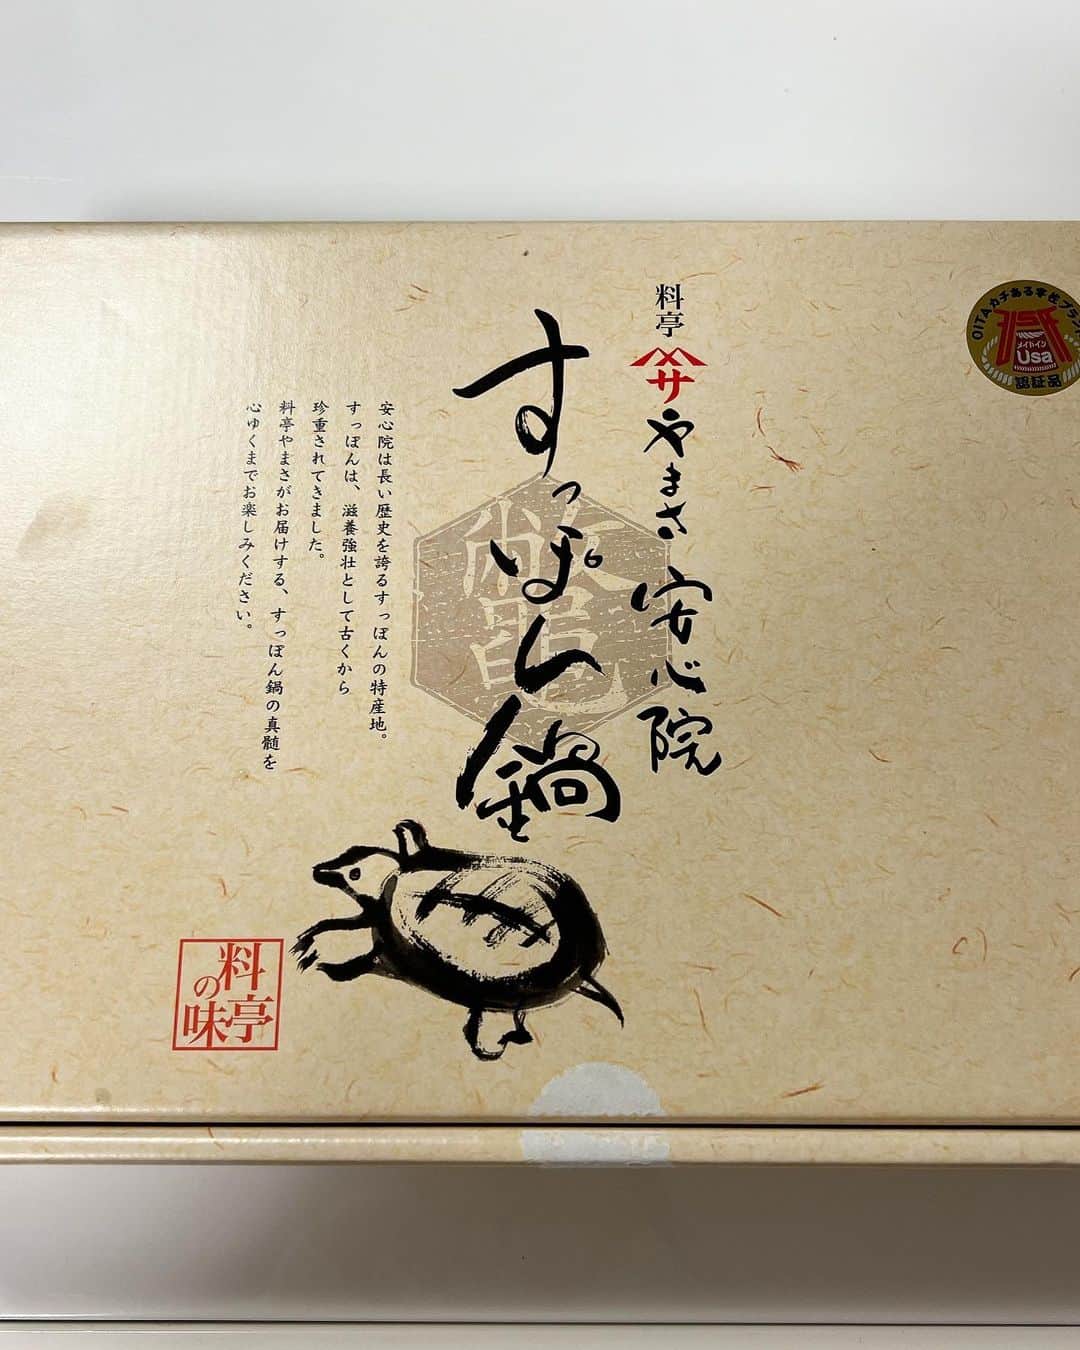 料亭
サ
やまさ 安心院
すっぽん鍋
鼈
安心院は長い歴史を誇るすっぽんの特産地。
すっぽんは、滋養強壮として古くから
珍重されてきました。
料亭やまさがお届けする、すっぽん鍋の真髄を
心ゆくまでお楽しみください。
料亭
の味
OITAカチある宇佐ブランド
メイドイン
Usa
認証品